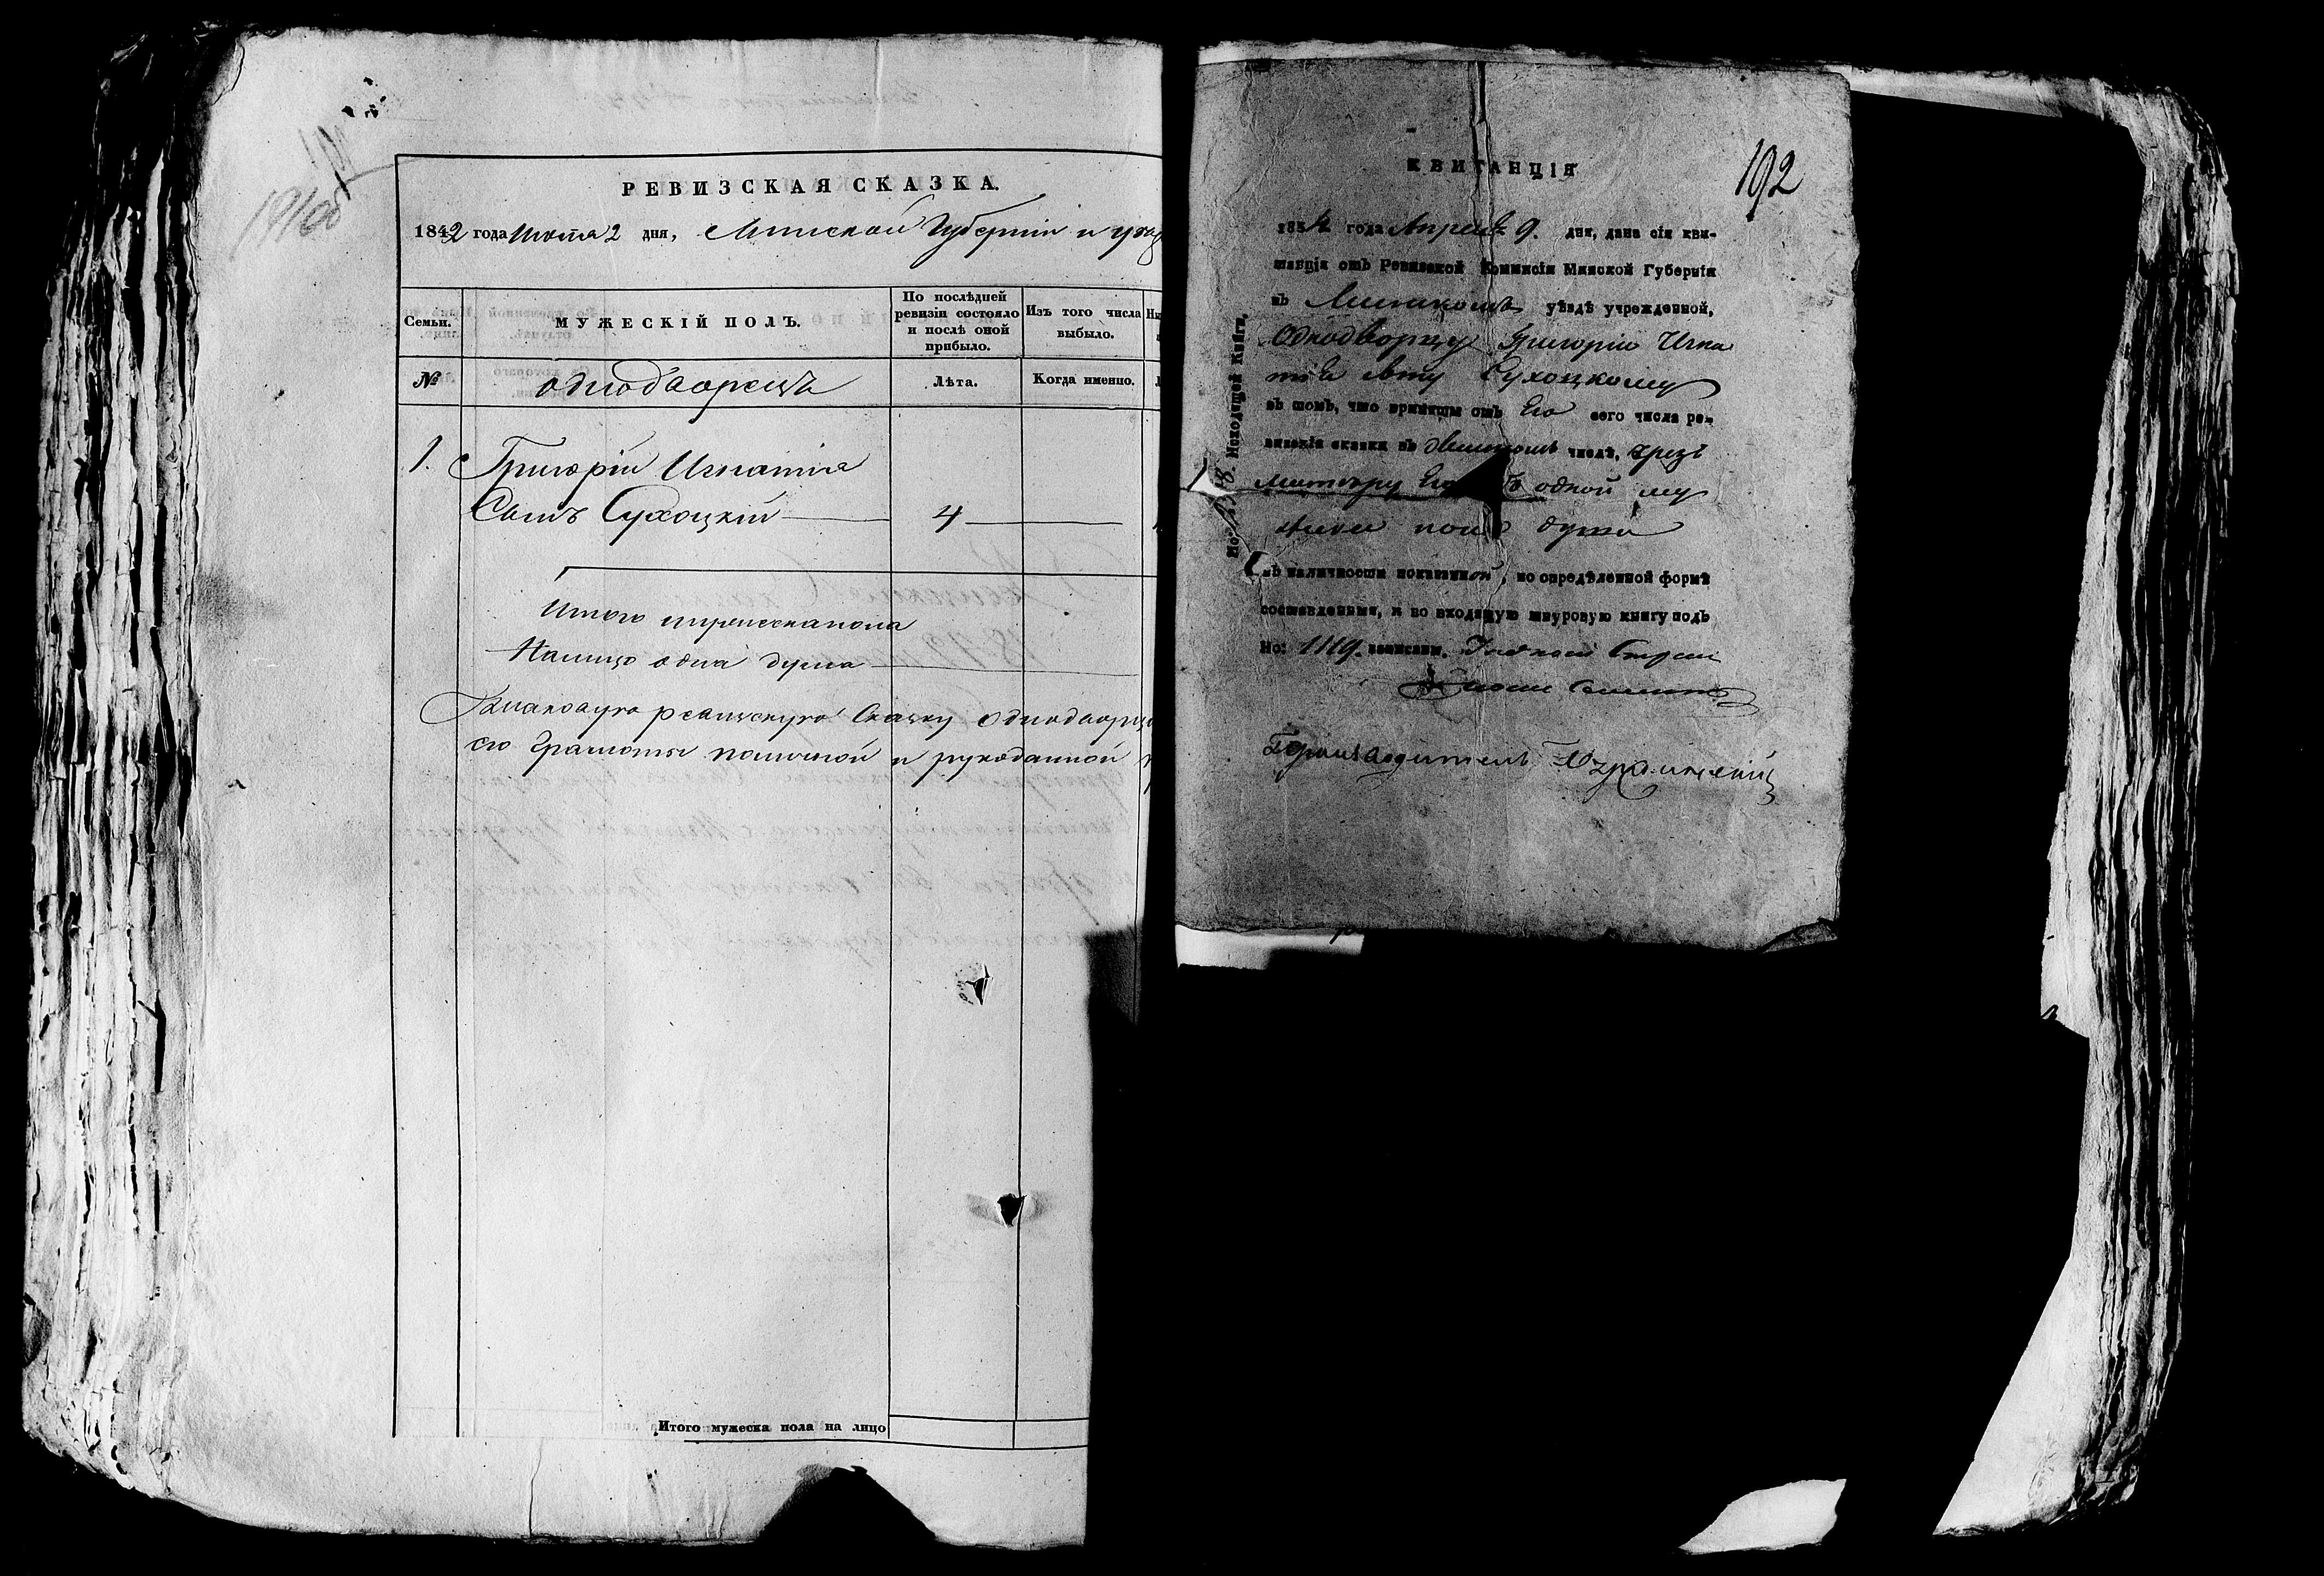 191об
РЕВИЗСКАЯ СКАЗКА.
1842 года Июня 2 дня, Минской Губерніи и уезд
Семьи.
МУЖЕСКІЙ ПОЛЪ.
По послѣдней ревизіи состояло и послѣ оной прибыло.
Изъ того числа выбыло.
№
однодворецъ
Лѣта.
Когда именно.
1. Григорій Игнатія
Сынъ Сухоцкій 4
Итого мужеска пола
Налицо одна душа
ревизскую Сказку однодворц
его Грамоты и рукоданной
Итого мужеска пола на лицо
192
КВИТАНЦІЯ
1834 года Апреля 9. дня, дана сія кви-
танція отъ Ревизской Коммисіи Минской Губерніи
въ Минскомъ уѣздѣ учрежденной,
Однодворцу Григорію Игна
тія сыну Сухоцкому
въ томъ, что приняты отъ Его сего числа ре-
визскія сказки въ числѣ, чрезъ
Его одной му
жеска пола души
въ наличности показанной, по опредѣленной формѣ
составленныя, и во входящую шнуровую книгу подъ
Но: 1119. записаны.
Но: Исходящей Книги,